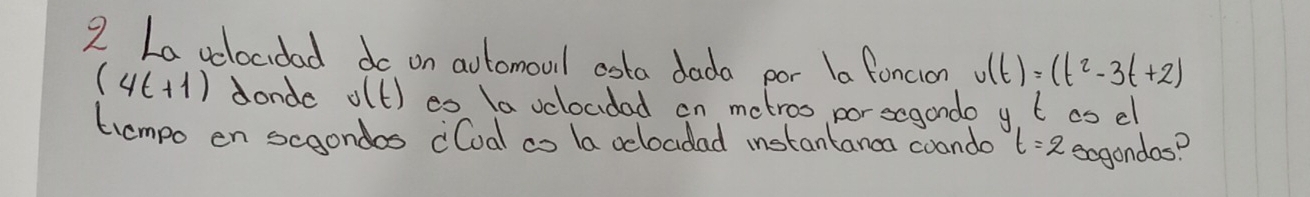 2 La velocidad de un automovil esta dada por la funcion v(t)=(t²-3t+2)
(4t+1) donde v(t) es la velocidad en metros por segundo y t es el
tiempo en segundos ¿Cual es la velocidad instantanea cuando t=2 segundos?